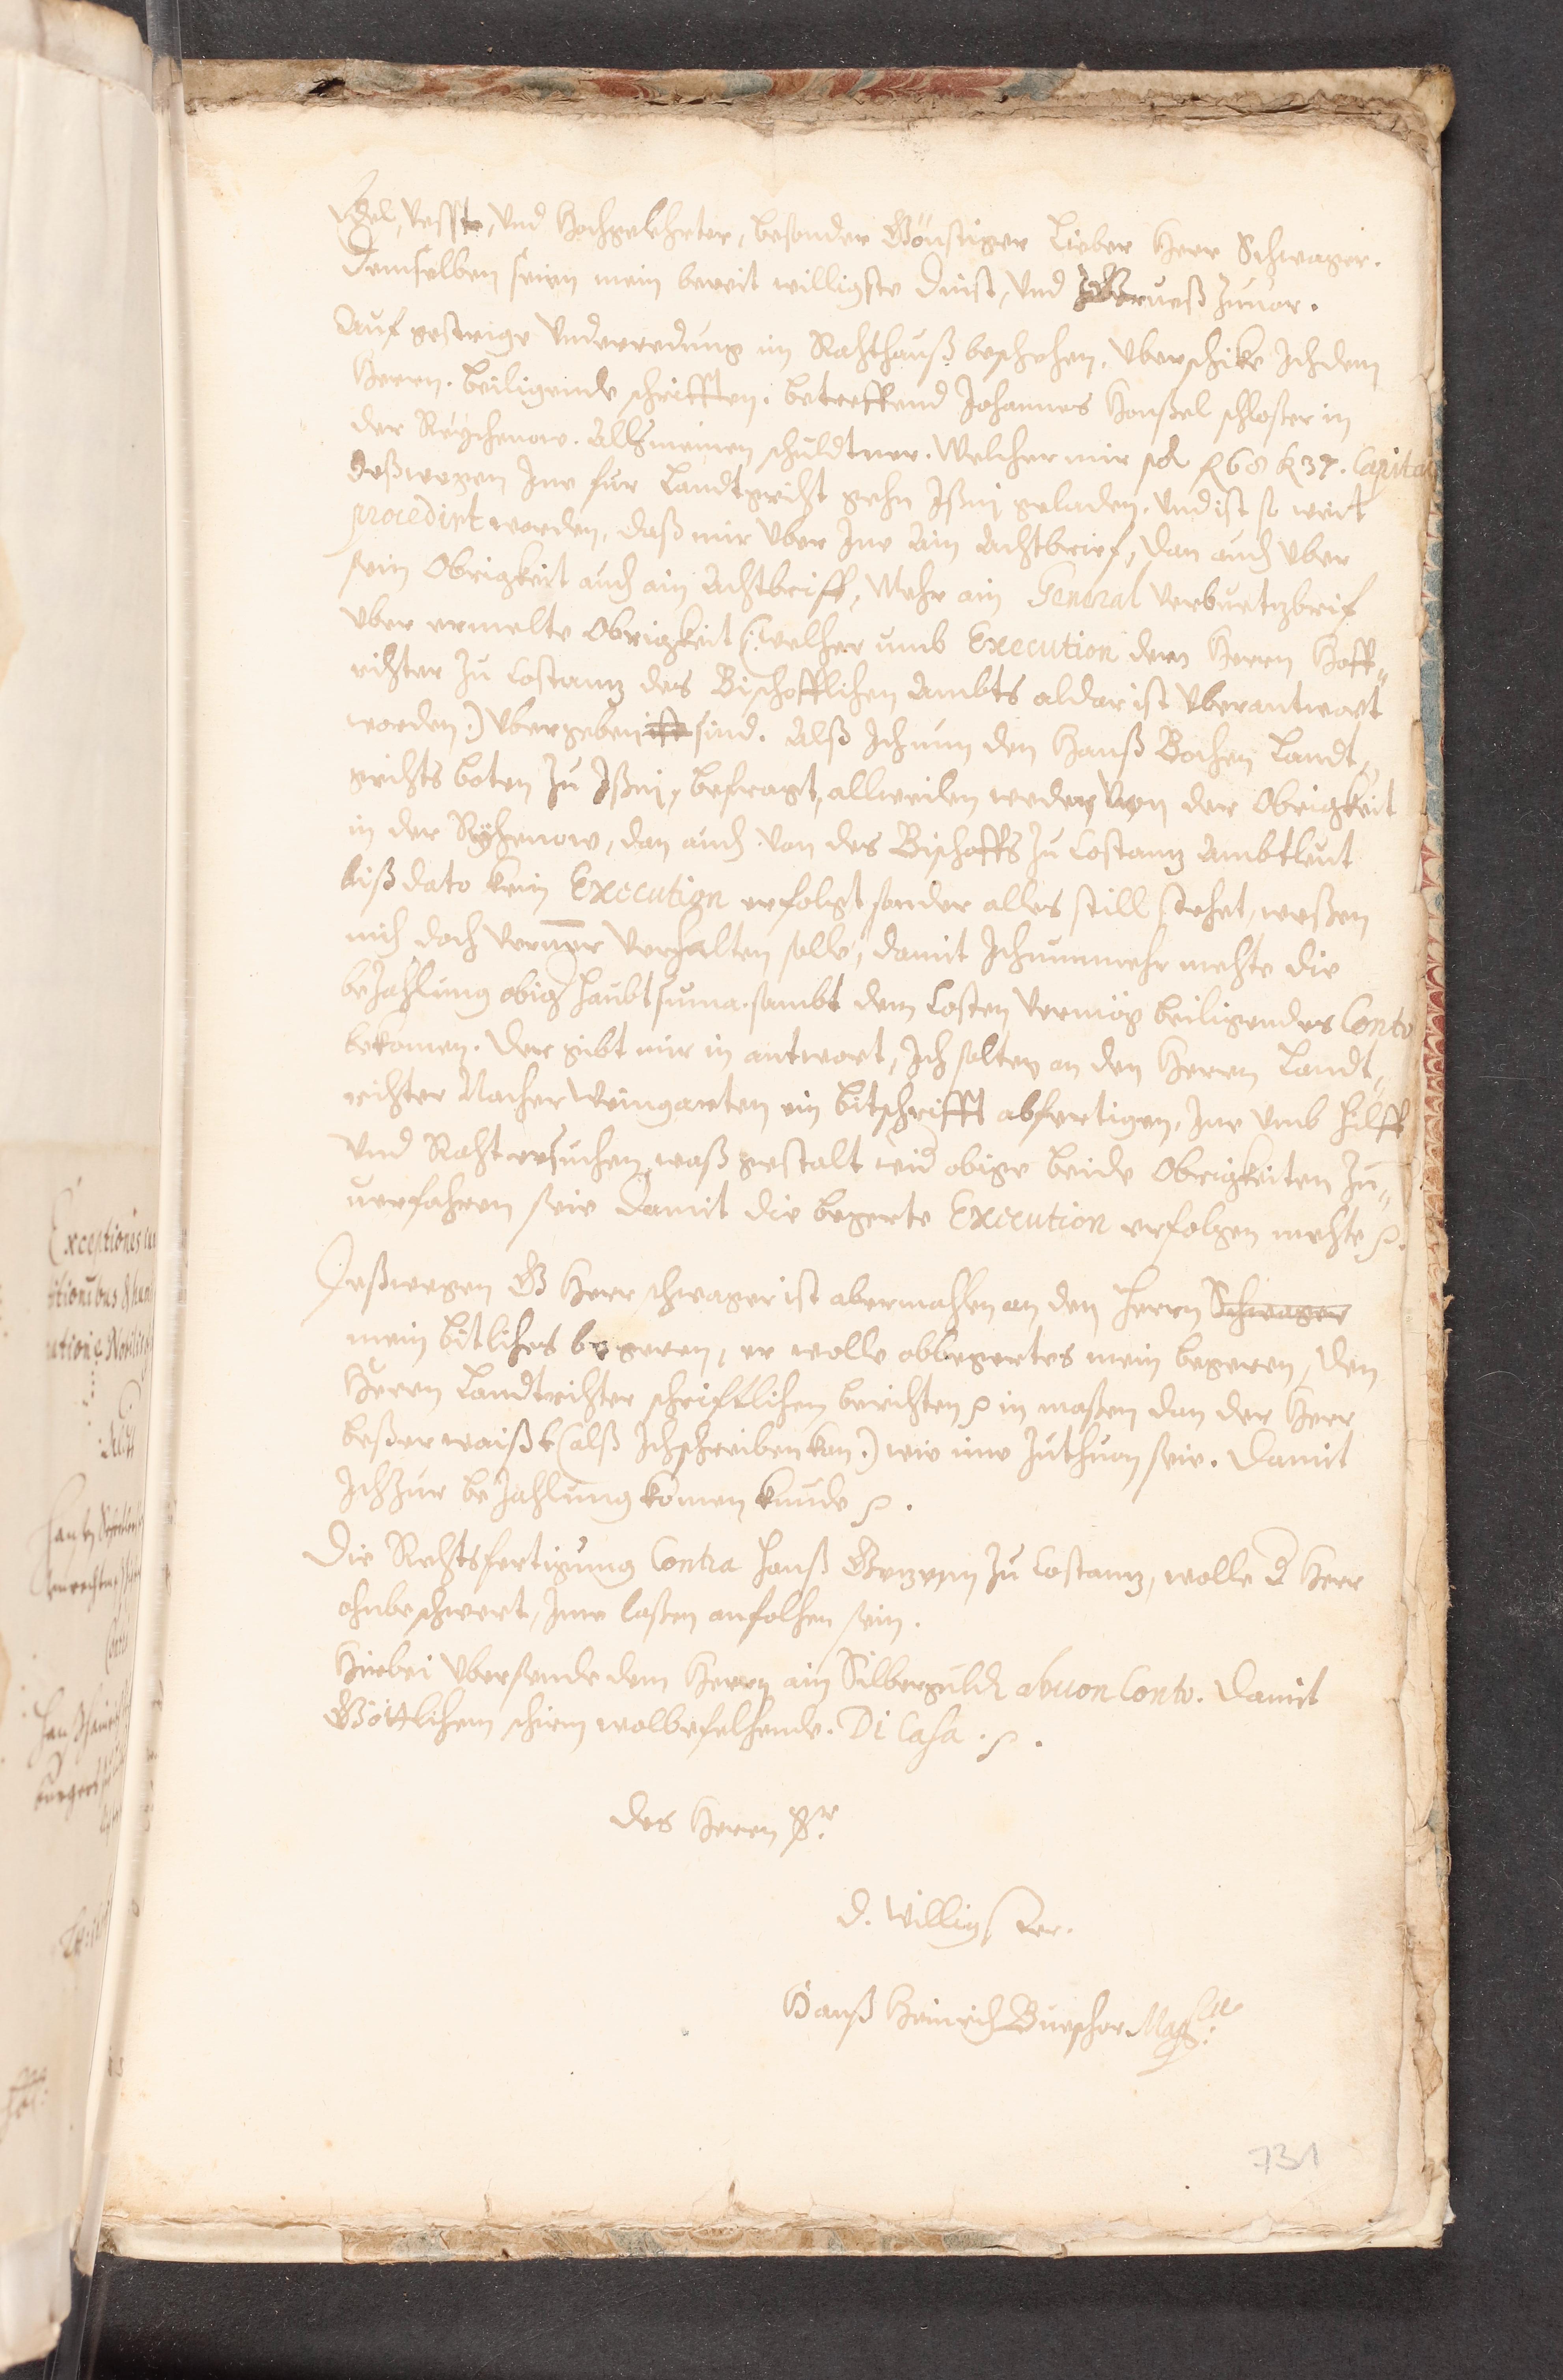 Edel, Vesste, Und Hochgelehrter, besonder Gönstiger Lieber Herr Schwager.
Demselben seien mein bereit willigste Dinst, Und Grueß Zuuor.
Auf gestrige Underredung im Rahthauß beschehen, Uberschike Ich dem
Herrn, beiligende schrifften, betreffend Johannes Honßel schloßer in
der Reychenow. Alß meinen schuldtner. Welcher mir sol f 68 k 37. Capital
deßwegen Ine für Landtgricht gehn Ißni geladen. Und ist so weit
procedirt worden, daß mir Uber Ine Ain Achtbrief, dan auch Uber
sein Obrigkeit auch ain Achtbriff, Mehr ain General Verbuetzbrif
Uber ermelte Obrigkeit (:welher umb Execution dem Herrn Hoff„
richter Zu Costantz des Bischofflihen Ambts aldar ist Uberantwort
worden:) Ubergeben ist sind. Alß Ich nun den Hanß Bochen Landt„
grichts boten Zu Ißni, befragt, allweilen weder Von der Obrigkeit
in der Rychenow, dan auch Von des Bischoffs Zu Costantz Ambtleut
biß dato kein Execution erfolgt sonder alles still stehet, weßen
mich doch verner Verhalten solle, damit Ich nunmehr mehte die
beZahlung obig Haubt suma. sambt dem Costen Vermög beiligendes Conto
bekomen. Der gibt mir in antwort, Ich solten an den Herrn Landt„
richter Nacher Weingarten ein bitschrifft abfertigen, Ine Umb Hilff
Und Raht ersuchen, waß gestalt wid obige beide Obrigkeiten Zu„
uerfahren seie damit die begerte Execution erfolgen mehte.
Deßwegen G Herr schwager ist abermahlen an den Herrn Schwager
mein bitliches begeren, er wolle obbegertes mein begeren, den
Herrn Landtrichter schrifftlihen berichten in maßen dan der Herr
beßer waißt (alß Ich schreiben kan:) wie ime Zuthuon seie. Damit
Ich Zur beZahlung komen kunde.
Die Rechtsfertigung Contra Hanß Zu Costantz, wolle d Herr
ohnbeschwert, Ime laßen anfolhen sein.
Hiebei Ubersende dem Herrn ain Silbergulde abuon Conto. Damit
Göttlihem schirm wolbefelhende. Di Casa.
des Herrn
D. Willigster.
Hanß Heinrich Burscher
731